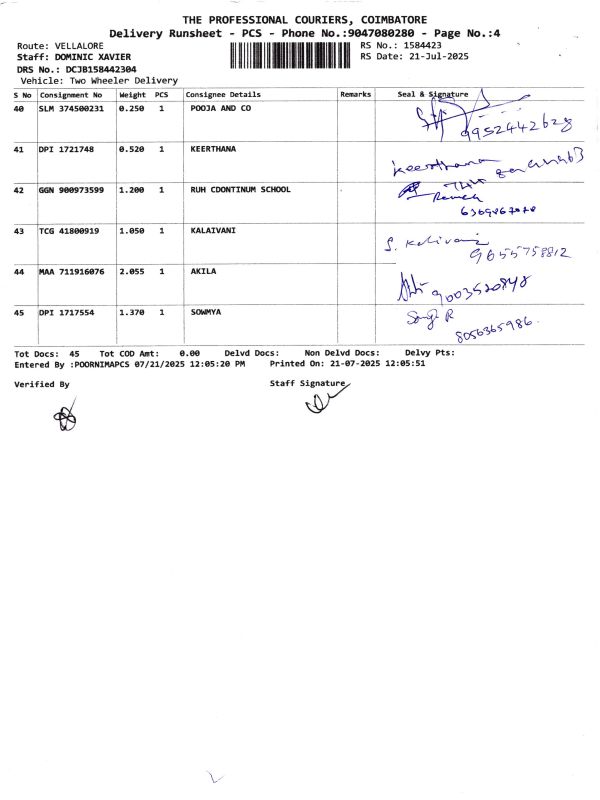 THE PROFESSIONAL COURIERS, COIMBATORE
Delivery Runsheet - PCS - Phone No.:9047080280 - Page No.:4
Route: VELLALORE
RS No.: 1584423
Staff: DOMINIC XAVIER
RS Date: 21-Jul-2025
DRS No.: DCJB158442304
Vehicle: Two Wheeler Delivery
S No Consignment No Weight PCS Consignee Details Remarks Seal & Signature
40 SLM 374500231 0.250 1 POOJA AND CO
9952442628
41 DPI 1721748 0.520 1 KEERTHANA
Keerthana
42 GGN 900973599 1.200 1 RUH CDONTINUM SCHOOL
43 TCG 41800919 1.050 1 KALAIVANI
S. Kalivani
9655758812
44 MAA 711916076 2.055 1 AKILA
9003520848
45 DPI 1717554 1.370 1 SOWMYA
8056365986.
Tot Docs: 45 Tot COD Amt: 0.00 Delvd Docs: Non Delvd Docs: Delvy Pts:
Entered By :POORNIMAPCS 07/21/2025 12:05:20 PM Printed On: 21-07-2025 12:05:51
Verified By Staff Signature